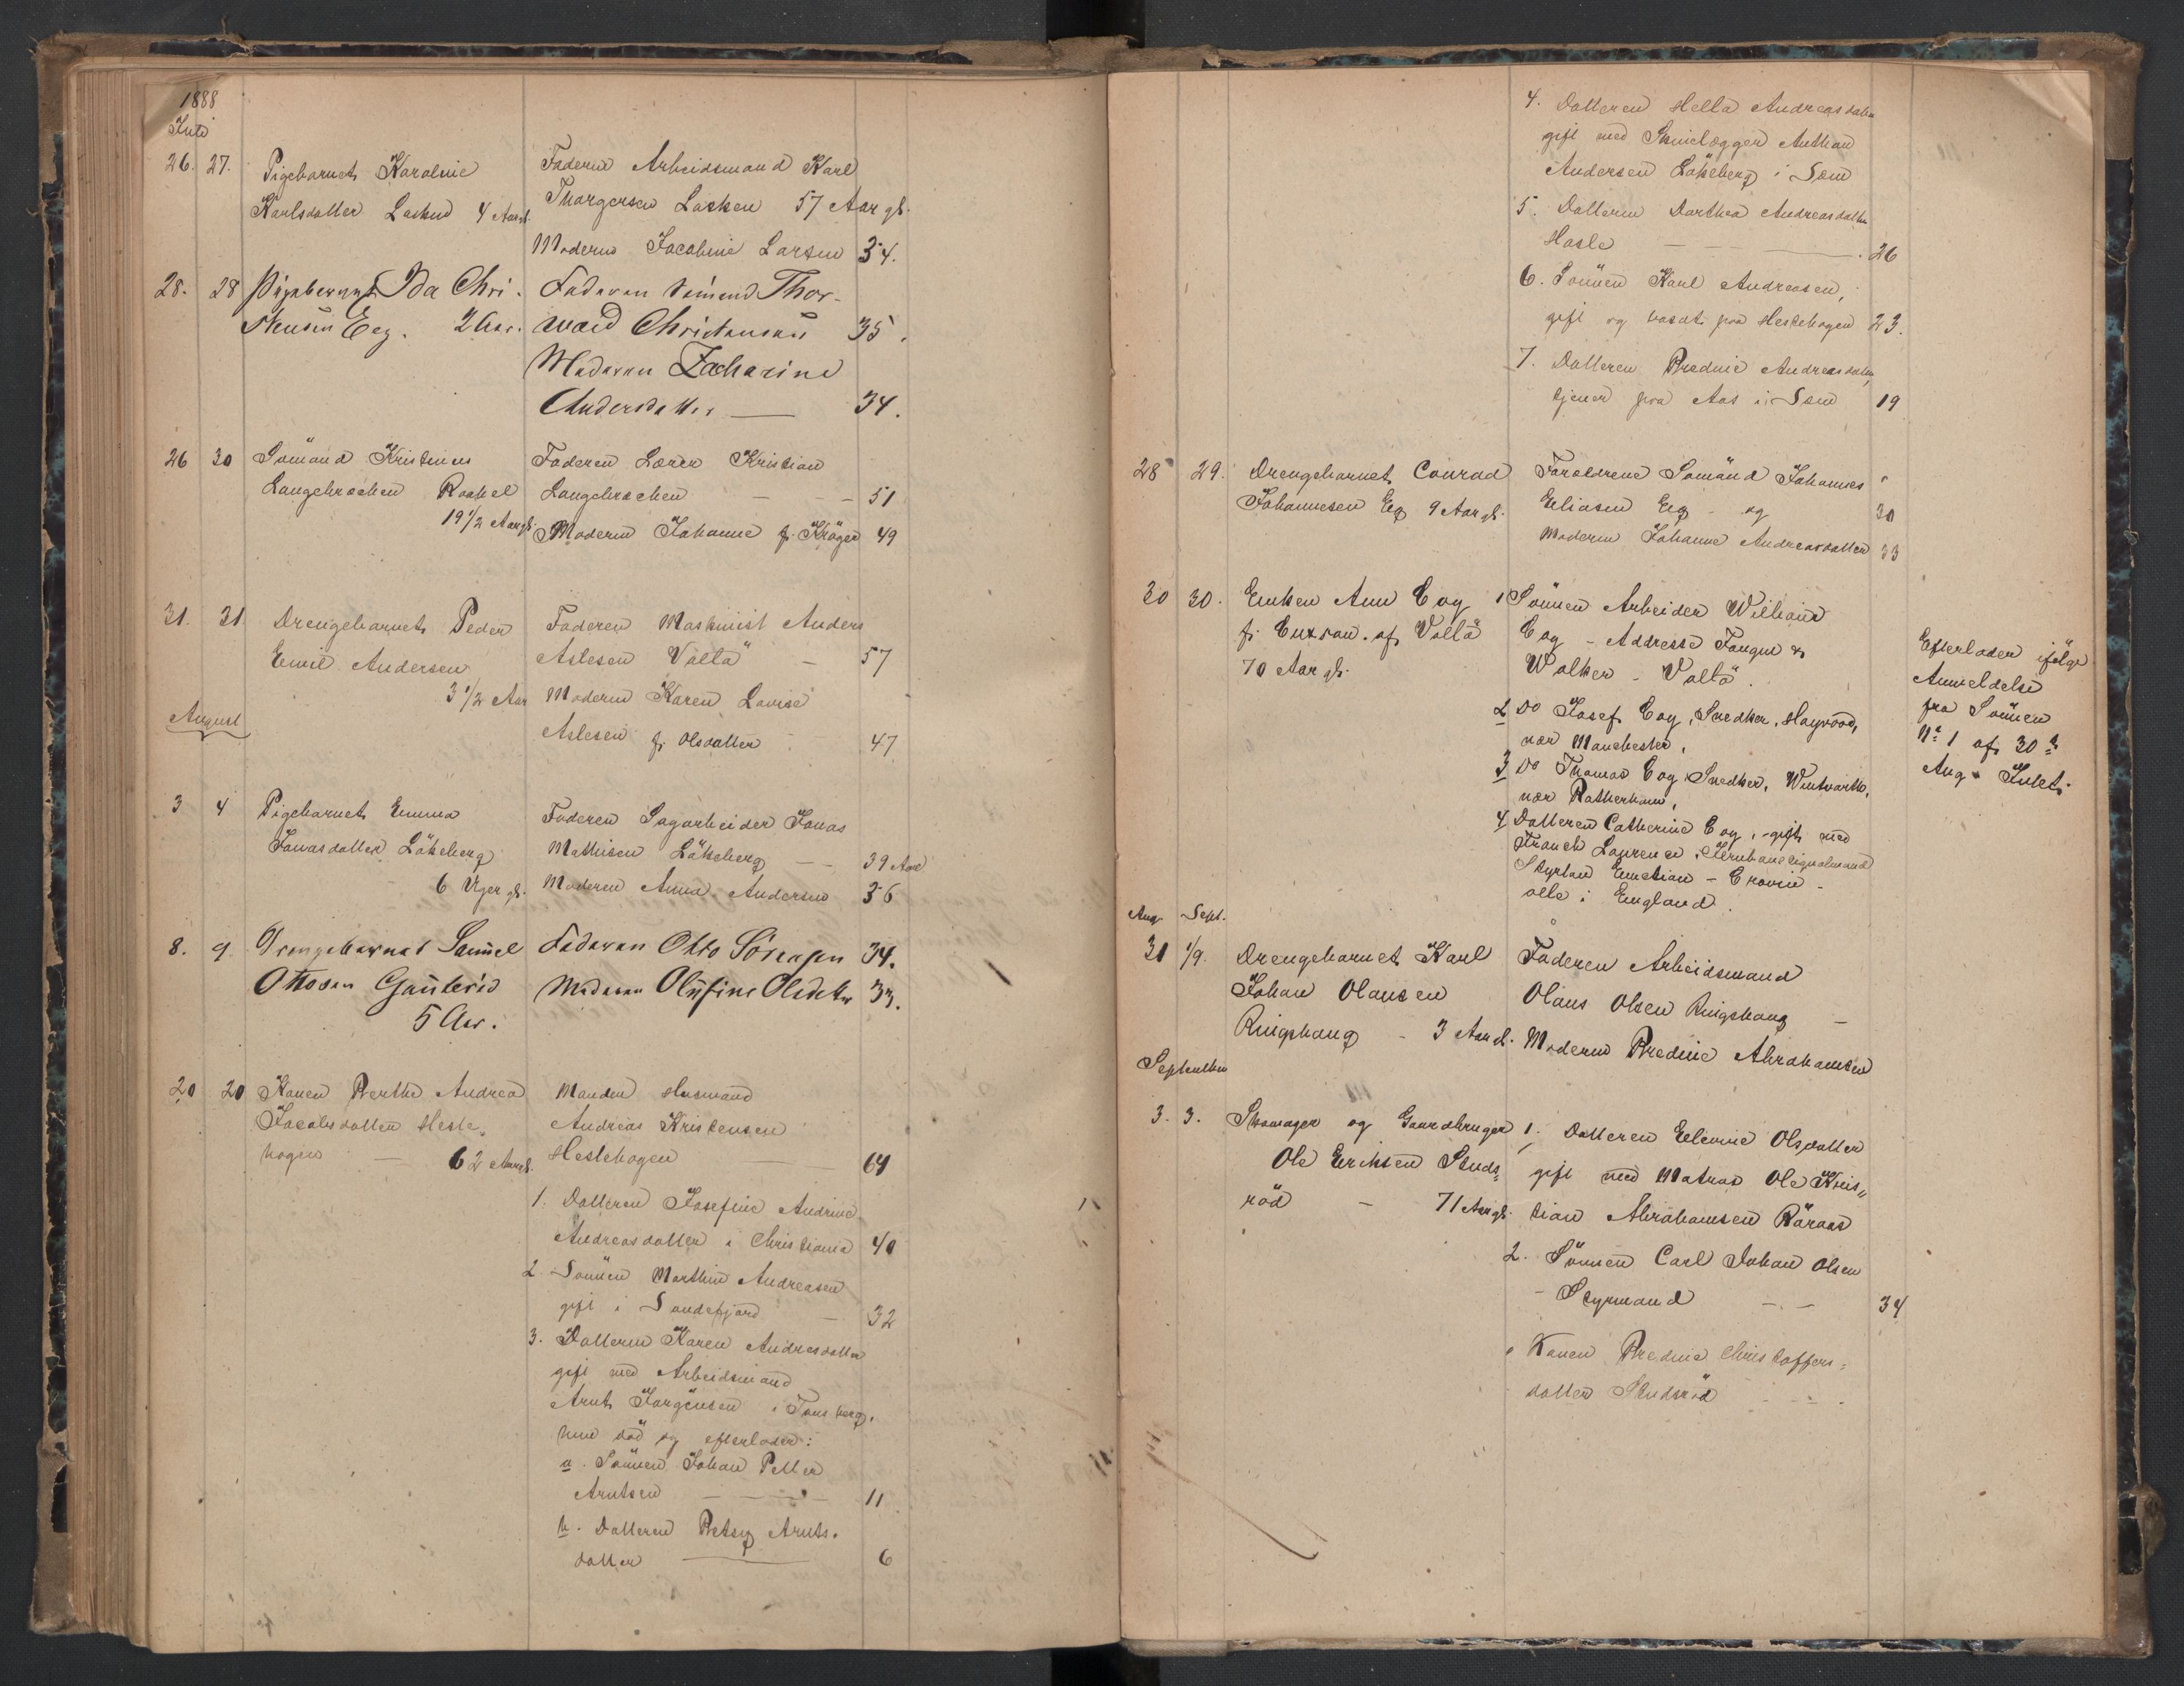 1888
Juli
26. 27. Pigebarnet Karoline Faderen Arbeidsmand Karl
Karlsdatter Lasken 4 Aar gl. Thorgersen Lasken 57 Aar gl.
Moderen Jacobine Larsen 54.
28. 28 Pigebarnet Ida Chri- Faderen Sømand Thor-
stensen Eeg. 2 Aar. wald Christensen 35.
Moderen Zacharine
Andersdatter — 34.
26 30 Sømand Kristinus Faderen Lærer Kristian
Langebrechen Raakel Langebrechen — — 51
19 1/2 Aar gl. Moderen Johanne f. Krøger 49
31. 31 Drengebarnet Peder Faderen Maskinist Anders
Emil Andersen Aslesen Vallø — 57
3 1/2 Aar Moderen Karen Lovise
Aslesen f. Olsdatter 47
August
3 4 Pigebarnet Emma Faderen Sagarbeider Jonas
Jonasdatter Løkeberg Mathisen Løkeberg — 39 Aar
6 Uger gl. Moderen Anna Andersen 36
8. 9. Drengebarnet Samuel Faderen Otto Sørensen 34.
Ottosen Moderen Olufine Olsdatter 33.
5 Aar.
20 20 Konen Berthe Andrea Manden Husmand
Jacobsdatter Heste- Andreas Kristensen
hagen — 62 Aar gl. Hestehagen — 64
1. Datteren Josefine Andrine
Andreasdatter i Christiania 40
2 Sønnen Marthin Andreasen
gift i Sandefjord — 32
3. Datteren Karen Andreasdatter
gift med Arbeidsmand
Arnt Jørgensen i Tønsberg,
hun død og efterlader:
a. Sønnen Johan Petter
Arntsen — 11
b. Datteren Betsy Arnts-
datter — 6
4. Datteren Hella Andreasdatter
gift med Skinelægger Anthon
Andersen Løkeberg i Sem
5. Datteren Dorthea Andreasdatter
Hasle — 26
6. Sønnen Karl Andreasen,
gift og bosat paa Hestehagen 23.
7. Datteren Bredine Andreasdatter,
tjener paa Aas i Sem 19
28 29. Drengebarnet Conrad Forældrene Sømand Johannes
Johannesen Eeg 9 Aar gl. Eliasen Eeg og 30
Moderen Johanne Andreasdatter 33
30 30. Enken Ann Coy 1 Sønnen Arbeider William
f. af Vallø Coy - Addresse Fangue &
70 Aar gl. Walker - Vallø.
2 Do Josef Coy, Snedker, Haywood,
nær Manchester,
3 Do Thomas Coy, Snedker, Wentworth,
nær Rotherham,
4 Datteren Catherine Coy, gift med
Franck Laurence, Jernbanesignalmand
alle i England.
Efterlader ifølge
Anmeldelse
fra Sønnen
No 1 af 30te
Aug.
Aug. Sept.
31 1/9. Drengebarnet Karl Faderen Arbeidsmand
Johan Olausen Olaus Olsen Ringshaug —
Ringshaug - 3 Aar gl. Moderen Bredine Abrahamsen
September
3. 3. Skomager og Gaardbruger 1. Datteren Elevine Olsdatter
Ole Eriksen Studs- gift med Matros Ole Kris-
rød — 71 Aar gl. tian Abrahamsen Røraas
2. Sønnen Carl Johan Olsen
- Styrmand — 34
Konen Bredine Christoffers-
datter Studsrød